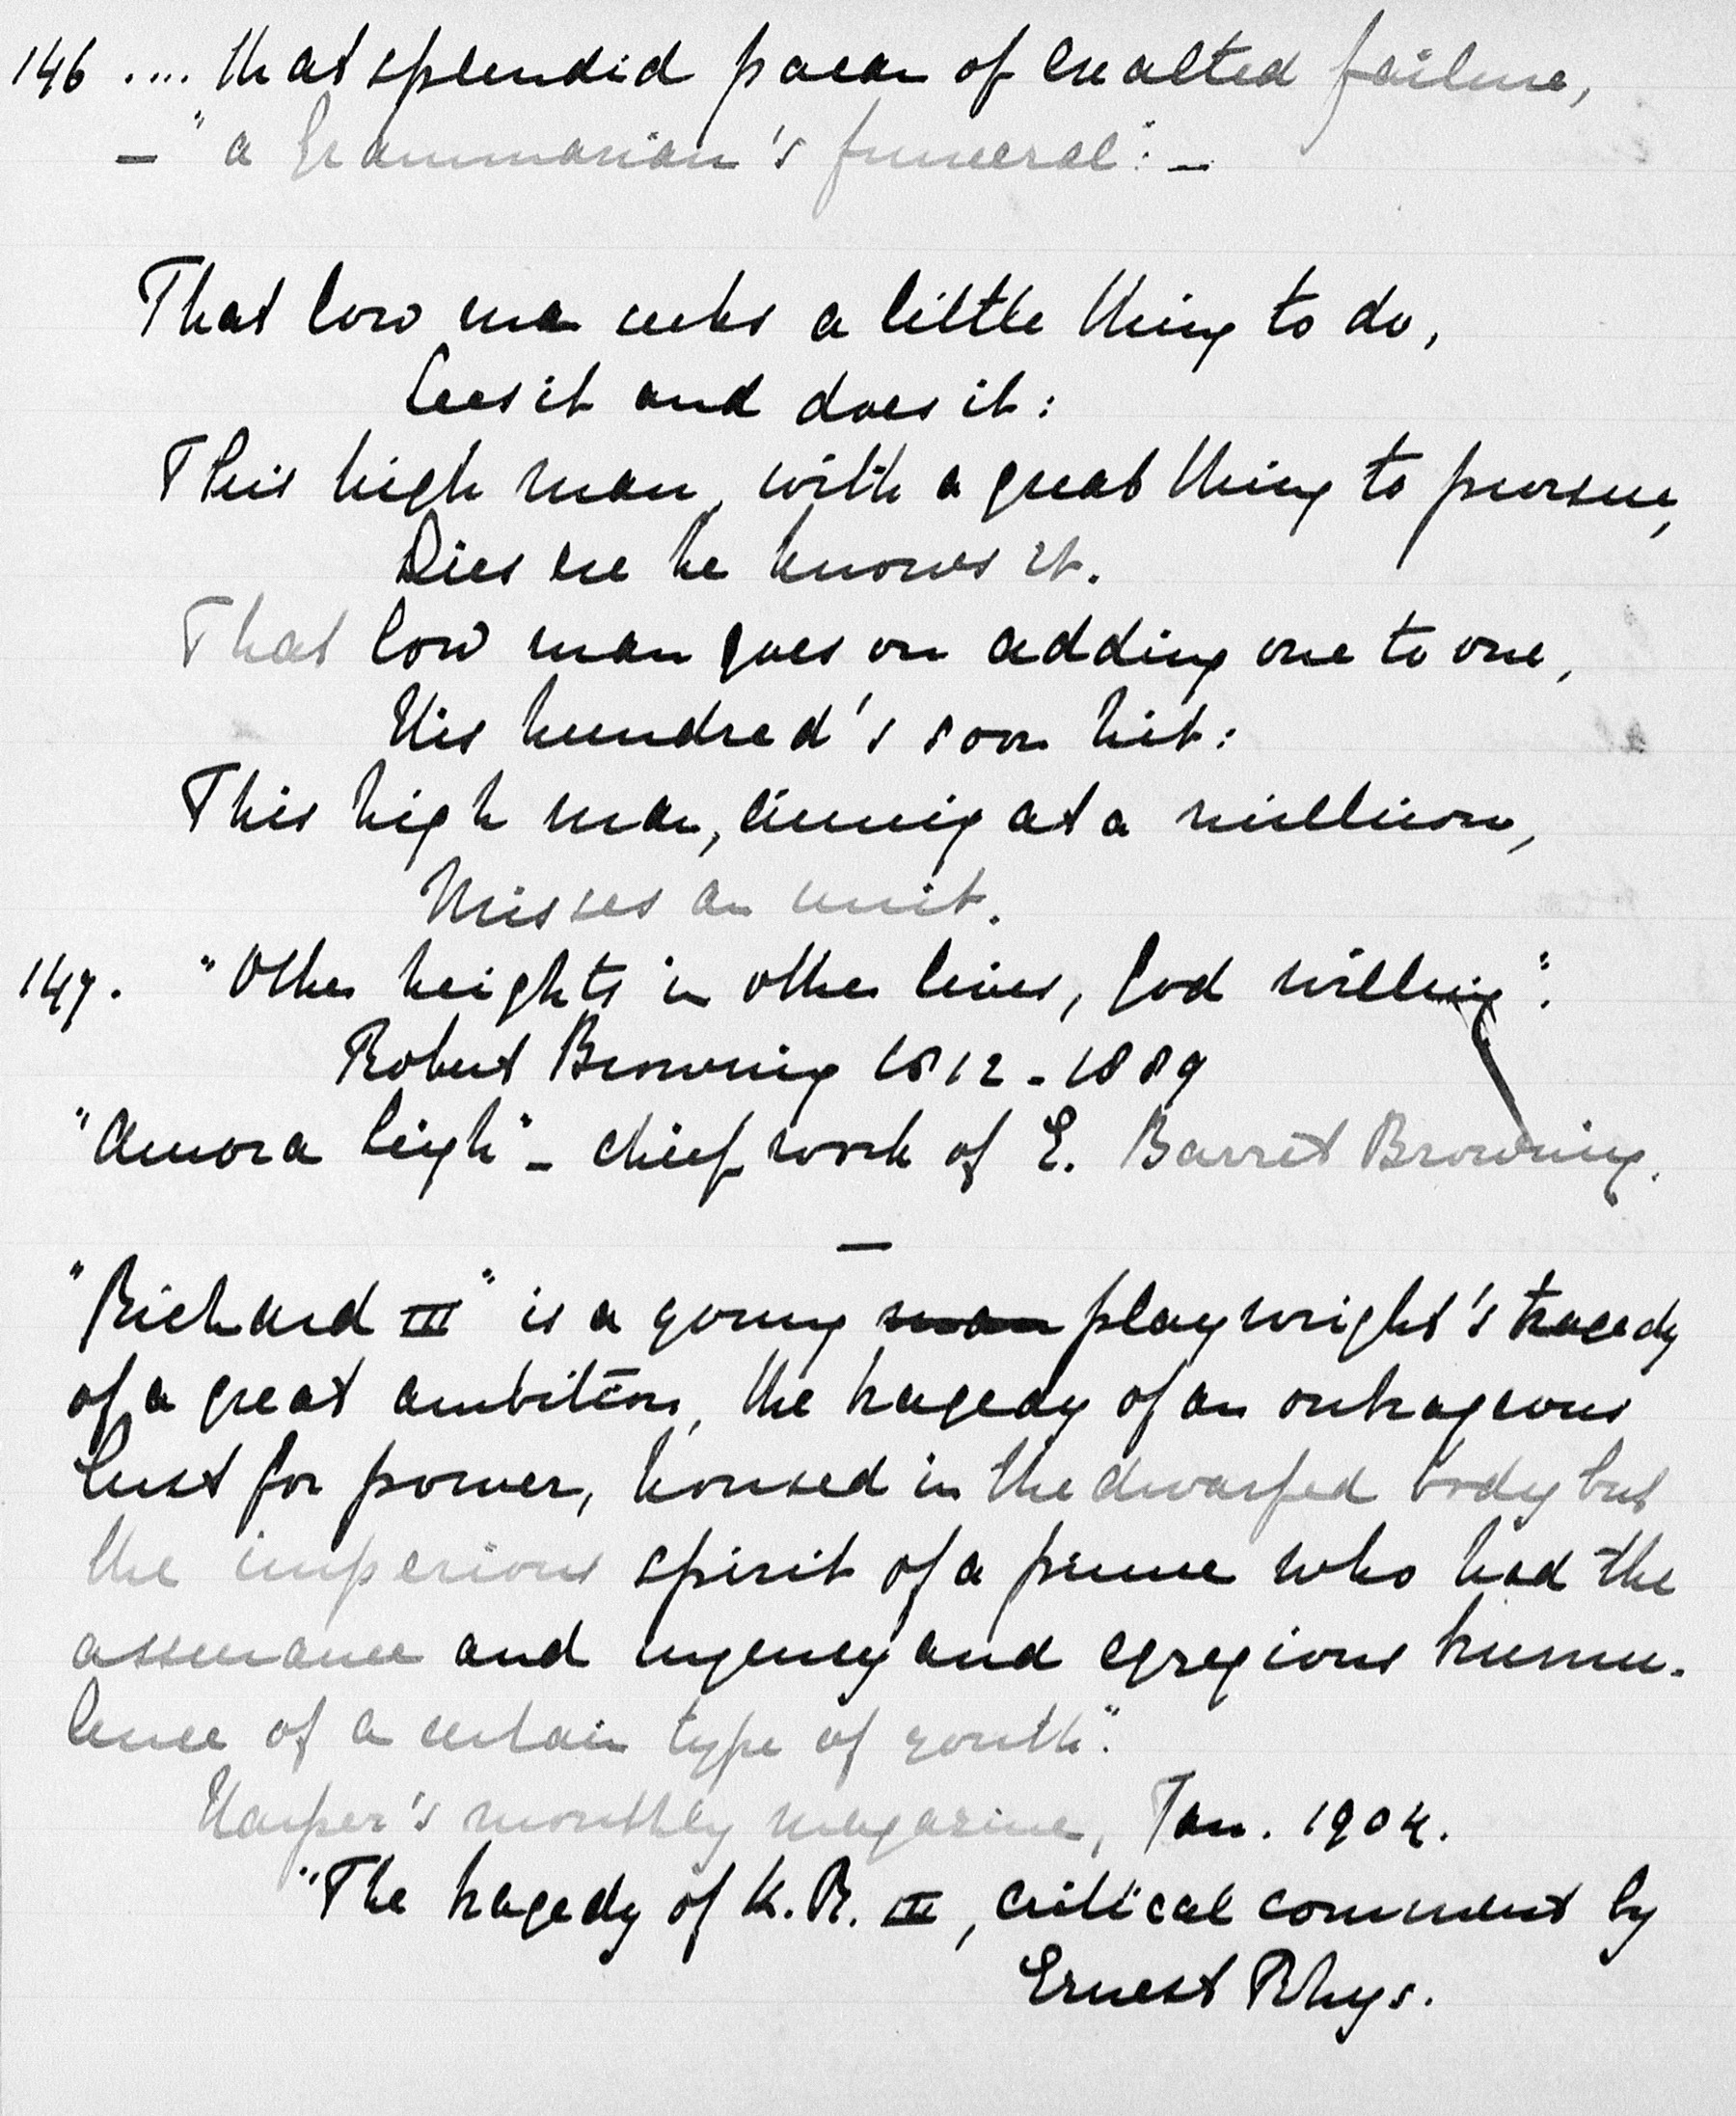 146 .... that splendid paean of exalted failure,
— "a Grammarian's funeral": —
That low man seeks a little thing to do,
Sees it and does it:
This high man, with a great thing to pursue,
Dies ere he knows it.
That low man goes on adding one to one,
His hundred's soon hit:
This high man, aiming at a million,
Misses an unit.
147. "Other heights in other lives, God willing".
Robert Browning 1812 - 1889
"Aurora Leigh" - chief work of E. Barret Browning.
—
"Richard III" is a young man playwright's tragedy
of a great ambition, the tragedy of an outrageous
lust for power, housed in the dwarfed body but
the imperious spirit of a prince who had the
assurance and urgency and egregious truculence-
lence of a certain type of youth".
Harper's monthly magazine, Jan. 1904.
"The tragedy of K. R. III, critical comment by
Ernest Rhys.